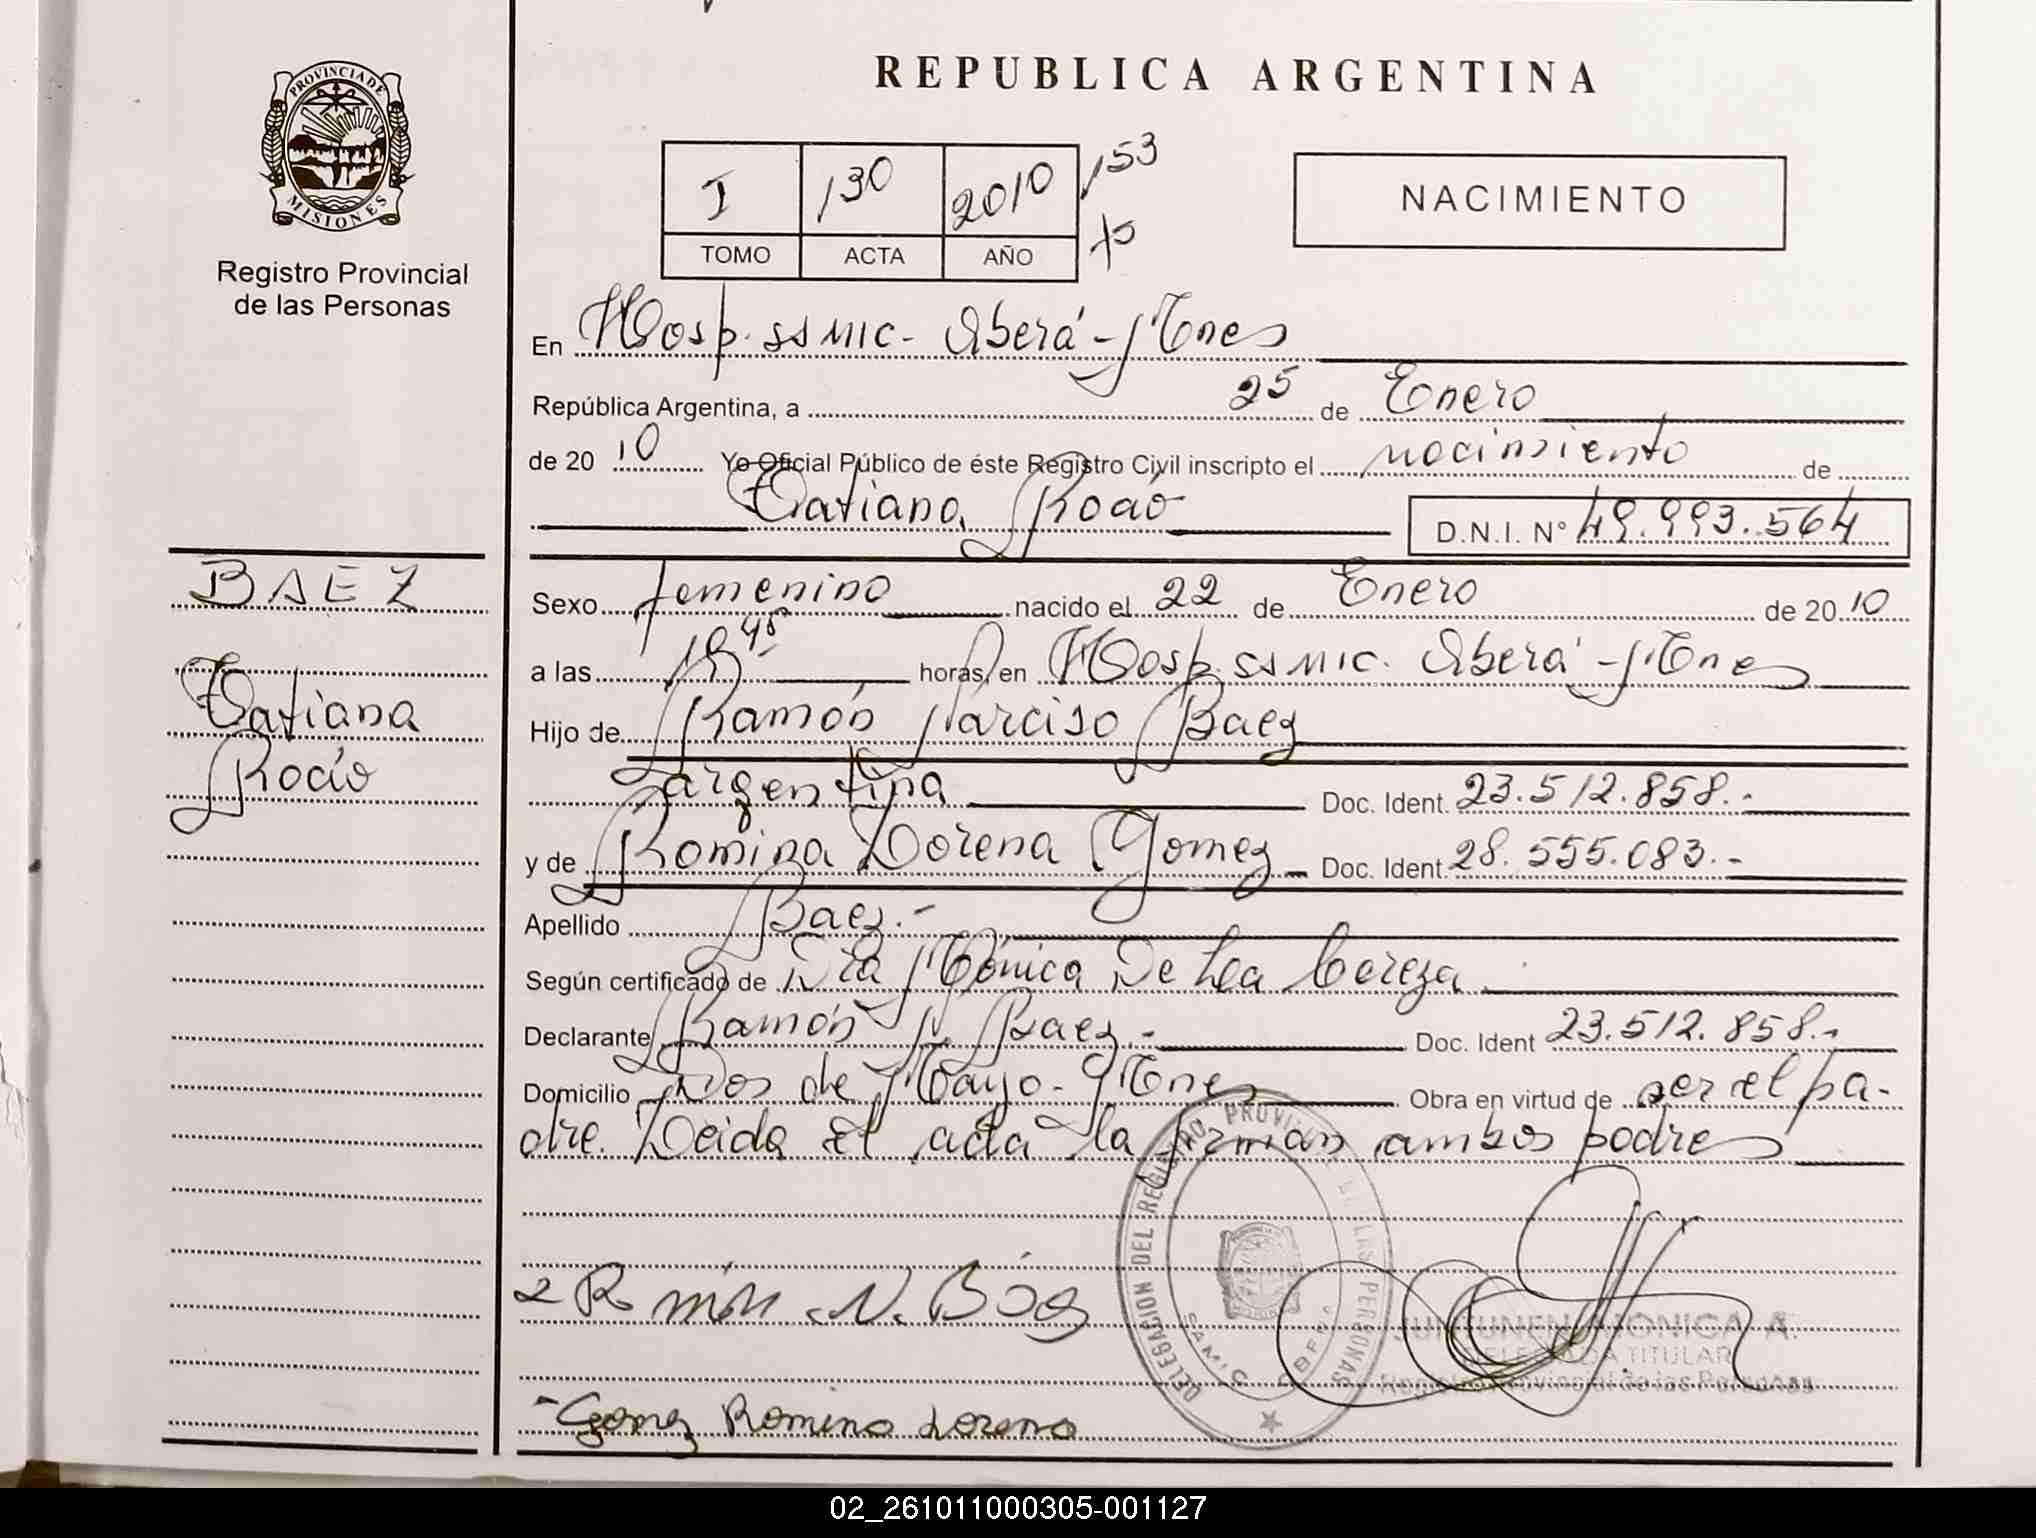 REPUBLICA ARGENTINA
PROVINCIA DE
MISIONES
Registro Provincial
de las Personas
I 130 2010 153
TOMO ACTA AÑO
NACIMIENTO
En Hosp. SSMIC. Oberá - Mnes
República Argentina, a 25 de Enero
de 20 10 Yo Oficial Público de éste Registro Civil inscripto el nacimiento de
Tatiana Rocío
D.N.I. N° 49.993.564
BAEZ
Tatiana
Rocío
Sexo femenino nacido el 22 de Enero de 20 10
a las 19 45 horas, en Hosp. SSMIC. Oberá - Mnes
Hijo de Ramón Narciso Baez
argentina Doc. Ident. 23.512.858.-
y de Romina Lorena Gomez - Doc. Ident. 28.555.083.-
Apellido Baez.-
Según certificado de Dra Mónica De La Cereza
Declarante Ramón N Baez.- Doc. Ident 23.512.858.-
Domicilio Dos de Mayo - Mnes Obra en virtud de ser el pa-
dre. Leida el acta la firman ambos padres
DELEGACION DEL REGISTRO PROVINCIAL DE LAS PERSONAS
SAMIC OBERA
N. B
JUNTUNEN MONICA A.
DELEGADA TITULAR
Registro Provincial de las Personas
- Gomez Romina Lorena
02_261011000305-001127